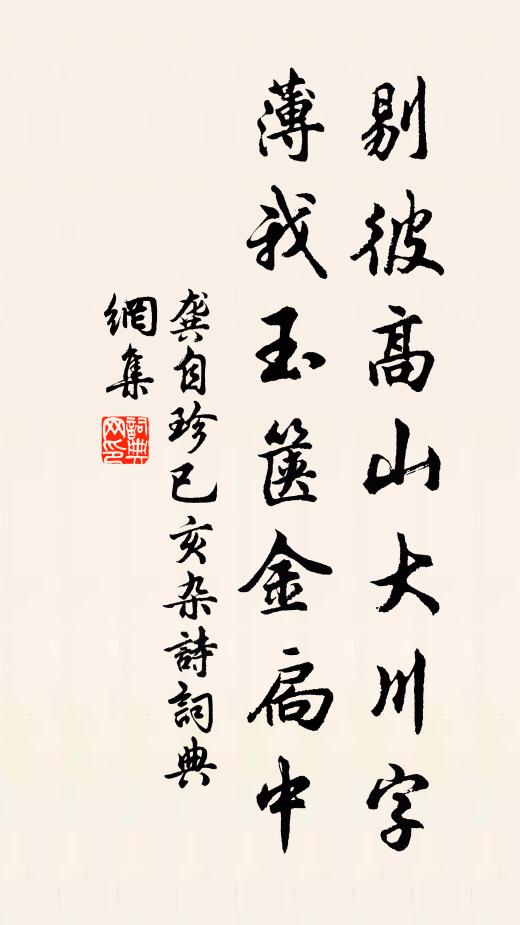 剔彼高山大川字
薄我玉篋金扃中
龔自珍已亥杂詩詞典
網集
詞典網印